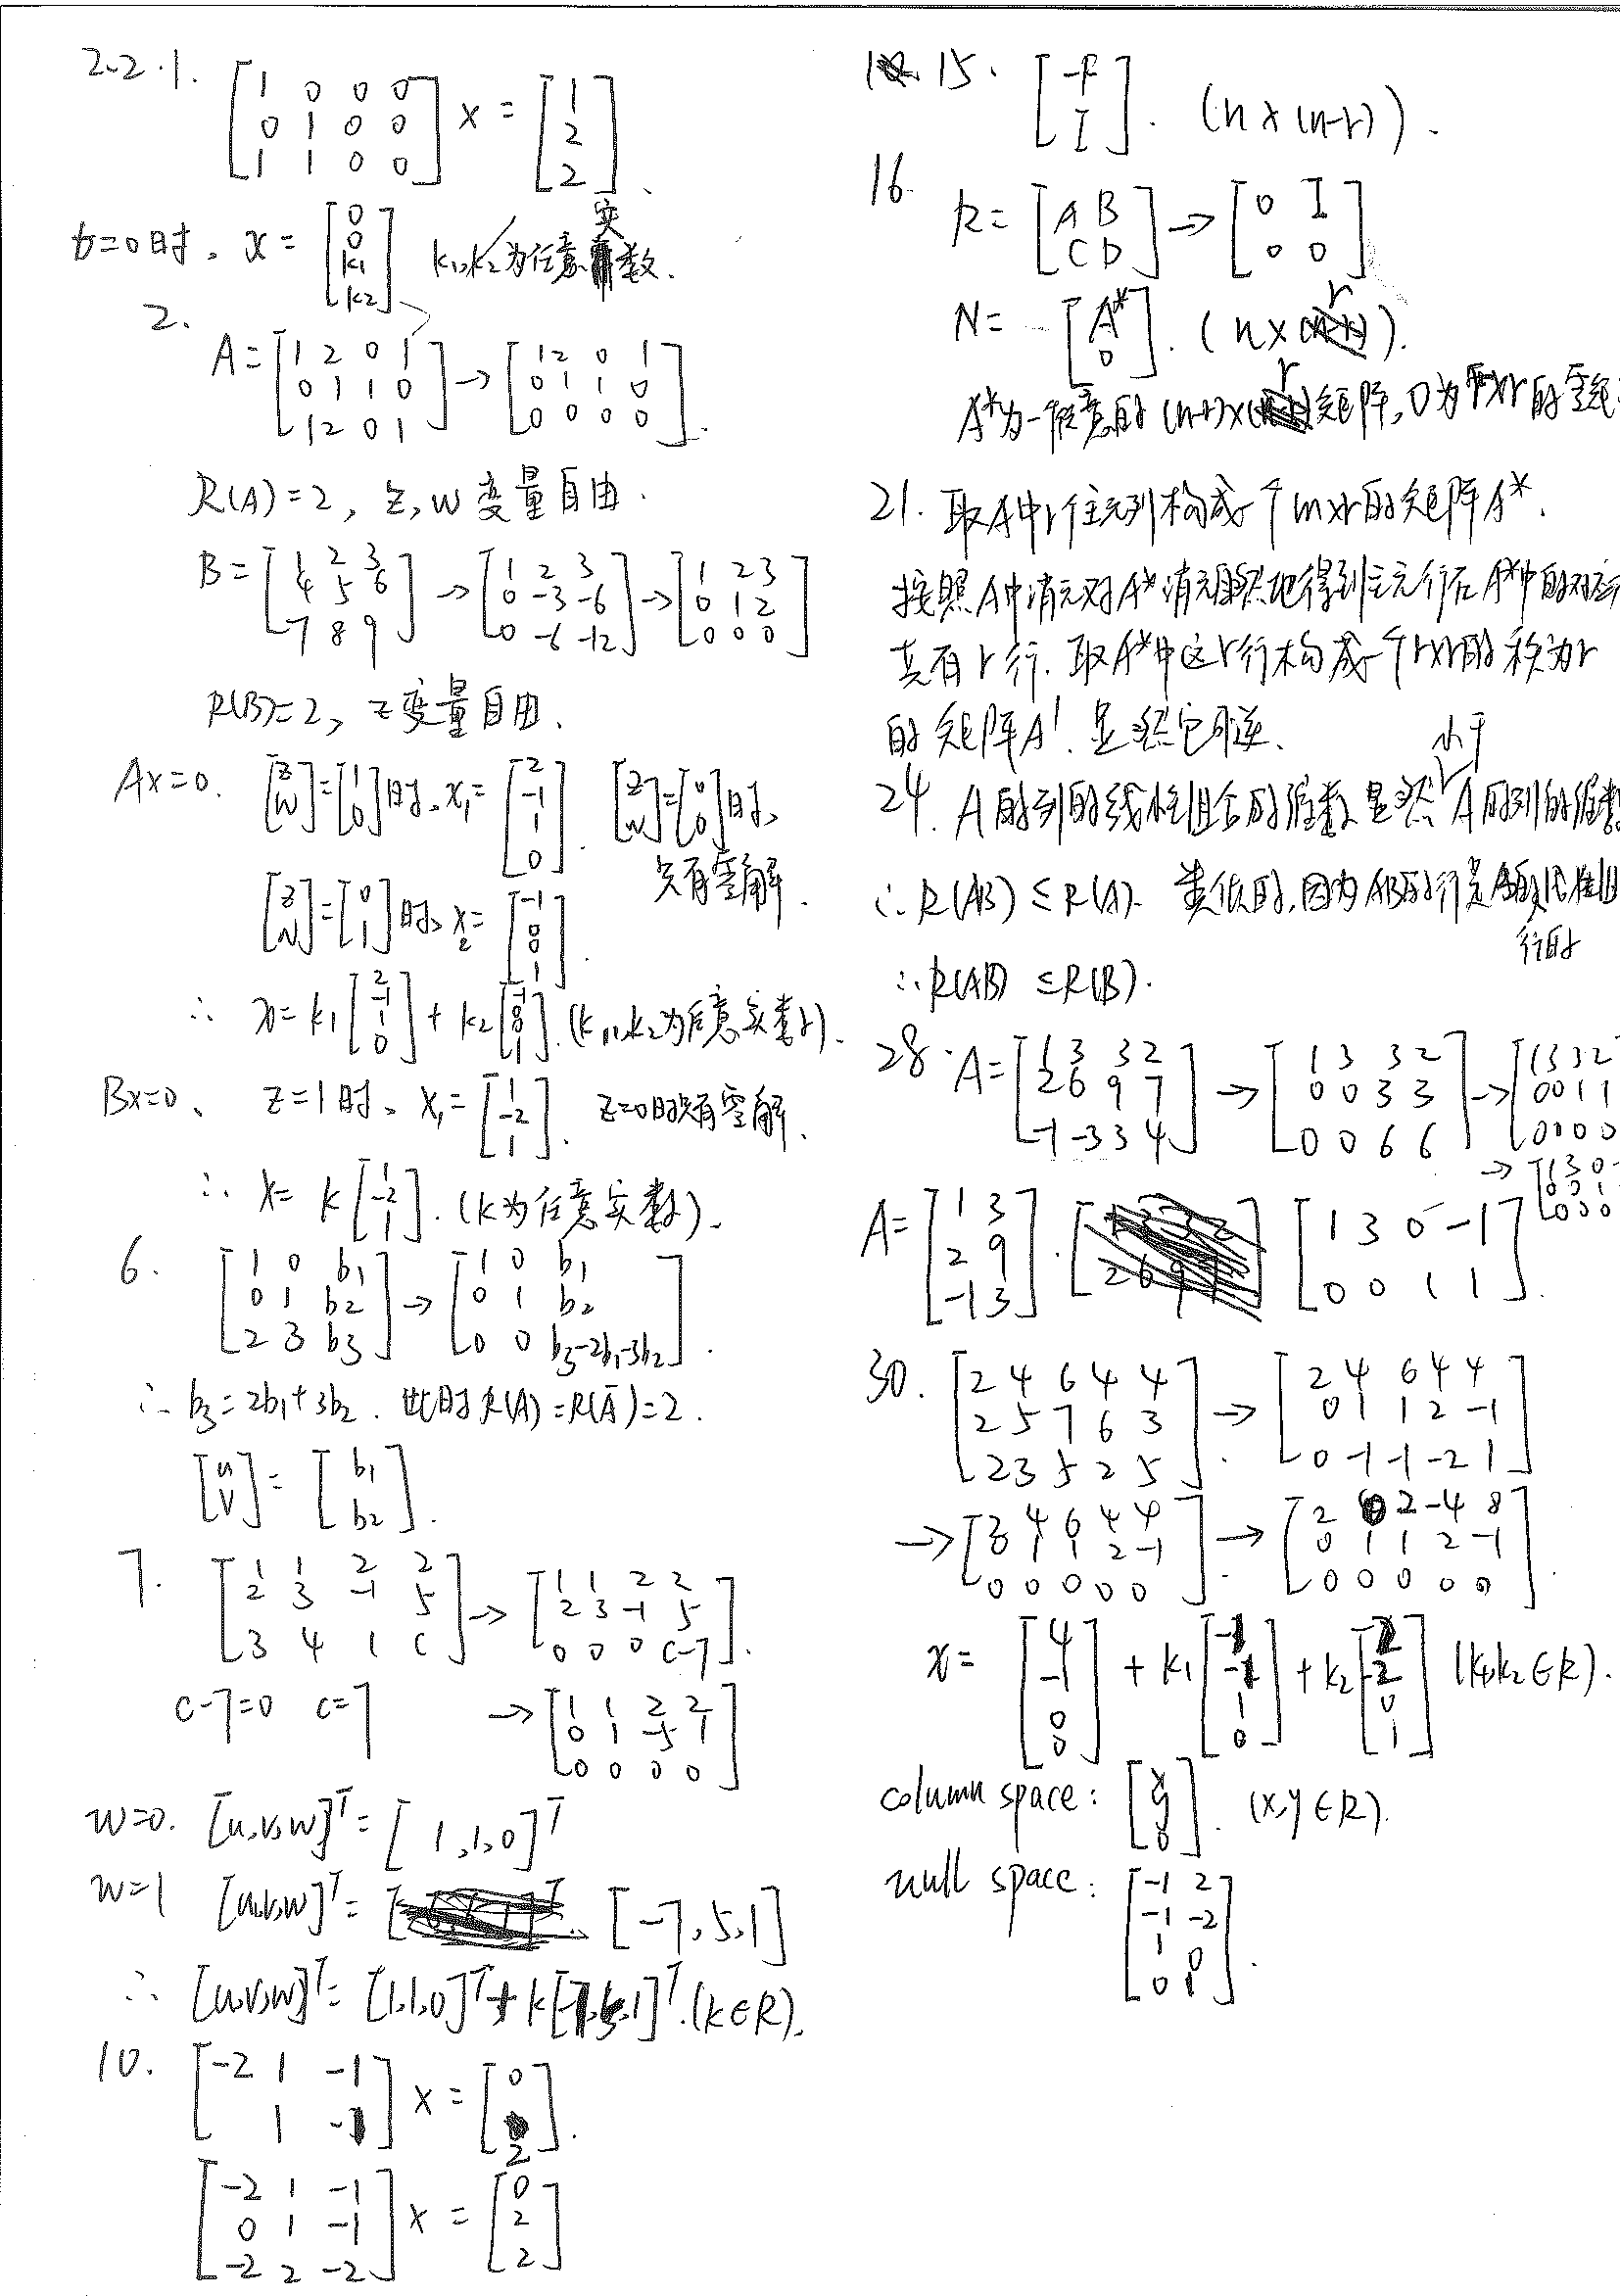 2.2.1.
[1 0 0 0
0 1 0 0
1 1 0 0] x = [1
2
2]
b=0时, x = [0
0
k1
k2] k1,k2为任意实数.
2.
A = [1 2 0 1
0 1 1 0
1 2 0 1] → [1 2 0 1
0 1 1 0
0 0 0 0].
R(A)=2, z,w变量自由.
B = [1 2 3
4 5 6
7 8 9] → [1 2 3
0 -3 -6
0 -6 -12] → [1 2 3
0 1 2
0 0 0]
R(B)=2, z变量自由.
Ax=0. [z
w]=[1
0]时, x1=[2
-1
1
0]. [z
w]=[0
0]时,
只有零解.
[z
w]=[0
1]时, x2=[-1
0
0
1].
∴ x = k1[2
-1
1
0] + k2[-1
0
0
1]. (k1,k2为任意实数).
Bx=0、 z=1时、x1=[1
-2
1]. z=0时只有零解.
∴ x = k[1
-2
1]. (k为任意实数).
6. [1 0 b1
0 1 b2
2 3 b3] → [1 0 b1
0 1 b2
0 0 b3-2b1-3b2].
∴ b3=2b1+3b2. 此时R(A)=R(Ā)=2.
[u
v] = [b1
b2].
7. [1 1 2 2
2 3 -1 5
3 4 1 c] → [1 1 2 2
2 3 -1 5
0 0 0 c-7].
c-7=0 c=7 → [1 1 2 2
0 1 -5 1
0 0 0 0]
w=0. [u,v,w]^T = [1,1,0]^T
w=1 [u,v,w]^T = [-7,5,1]
∴ [u,v,w]^T = [1,1,0]^T + k[-7,5,1]^T. (k∈R).
10. [-2 1 -1
1 -1] x = [0
2].
[-2 1 -1
0 1 -1
-2 2 -2] x = [0
2
2]
15. [-F
I]. (n×(n-r)).
16.
R = [A B
C D] → [0 I
0 0]
N = [A*
0]. (n×r).
A*为一任意的(n-r)×r矩阵, 0为r×r的零矩
21. 取A中r个主元列构成一个m×r的矩阵A*.
按照A中消元对A*消元自然地得到主元行在A*中的对应
共有r行. 取A*中这r行构成一个r×r的秩为r
的矩阵A'. 显然它可逆.
24. A的列的线性组合的维数显然小于A的列的维数
∴ R(AB) ≤ R(A). 类似的, 因为AB的行是
行的
∴ R(AB) ≤ R(B).
28. A = [1 3 3 2
2 6 9 7
-1 -3 3 4] → [1 3 3 2
0 0 3 3
0 0 6 6] → [1 3 3 2
0 0 1 1
0 0 0 0
→ [1 3 0
0 0 1
0 0 0
A = [1 3
2 9
-1 3]. [1 3 0 -1
0 0 1 1].
30. [2 4 6 4 4
2 5 7 6 3
2 3 5 2 5]. → [2 4 6 4 4
0 1 1 2 -1
0 -1 -1 -2 1]
→ [2 4 6 4 4
0 1 1 2 -1
0 0 0 0 0]. → [2 0 2 -4 8
0 1 1 2 -1
0 0 0 0 0].
x = [4
-1
0
0] + k1[-1
-1
1
0] + k2[2
-2
0
1] (k1,k2∈R).
column space: [x
y
0]. (x,y∈R).
null space: [-1 2
-1 -2
1 0
0 1].